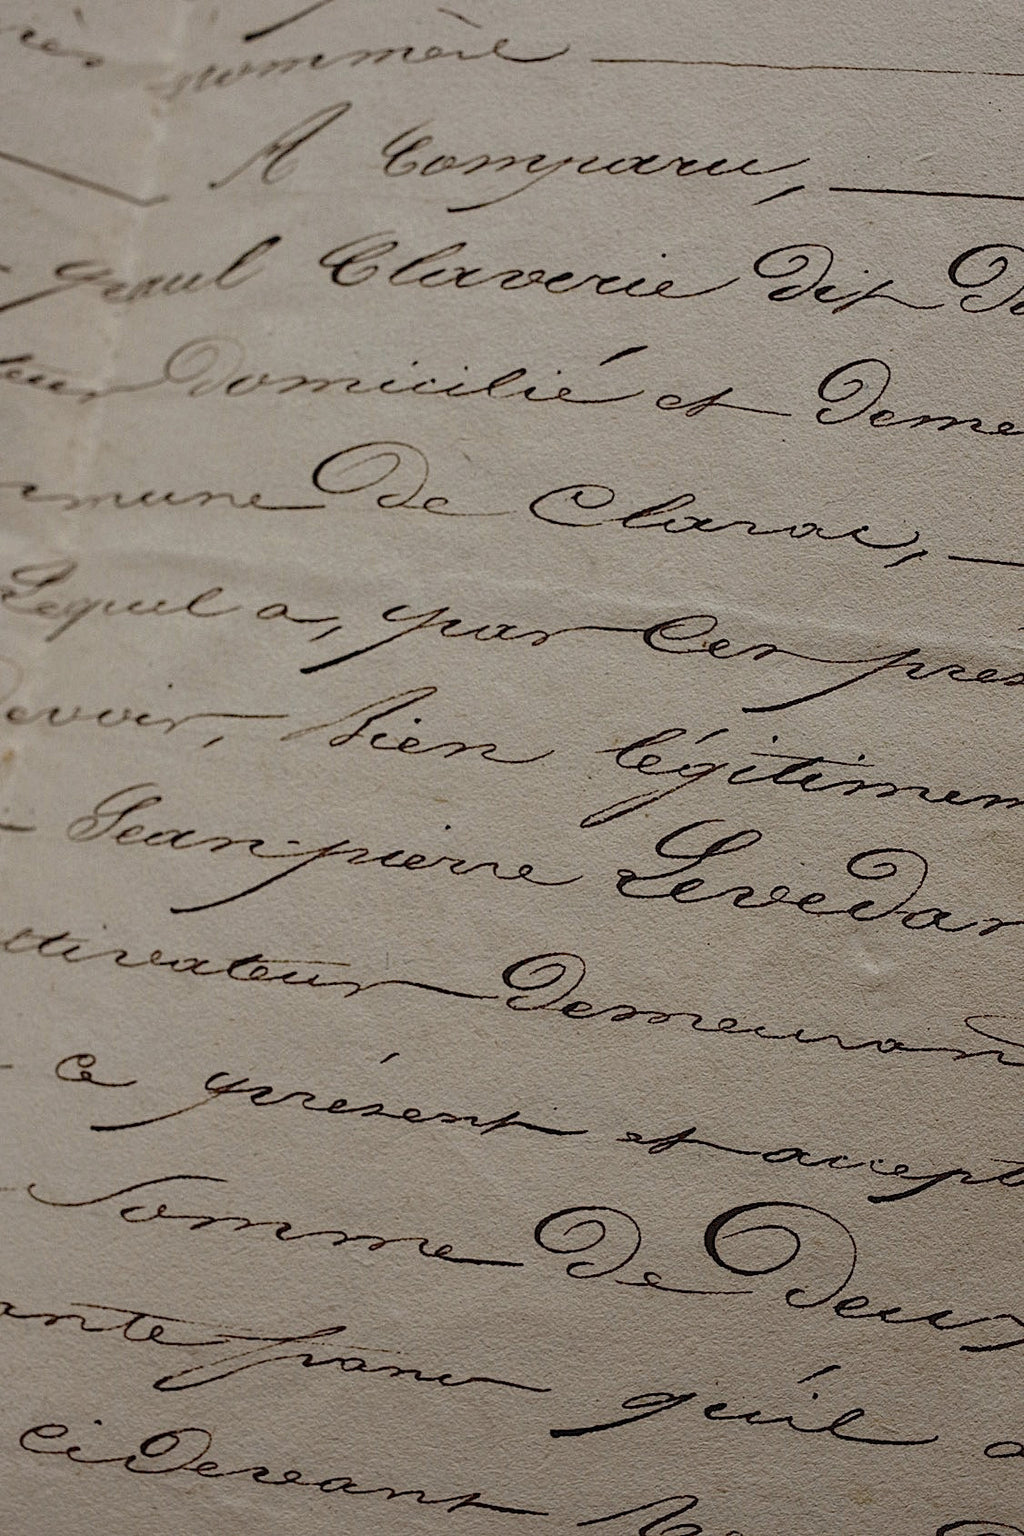 nommés
A Comparu,
paul Claverie dit
domicilié et deme
mmune de Clarac,
Lequel a, par Ces prés
devoir, bien légitimem
Jean-pierre Levedan
ltivateur demeurant
ce présent et accept
Somme de deux
ante francs qu'il a
cidevant